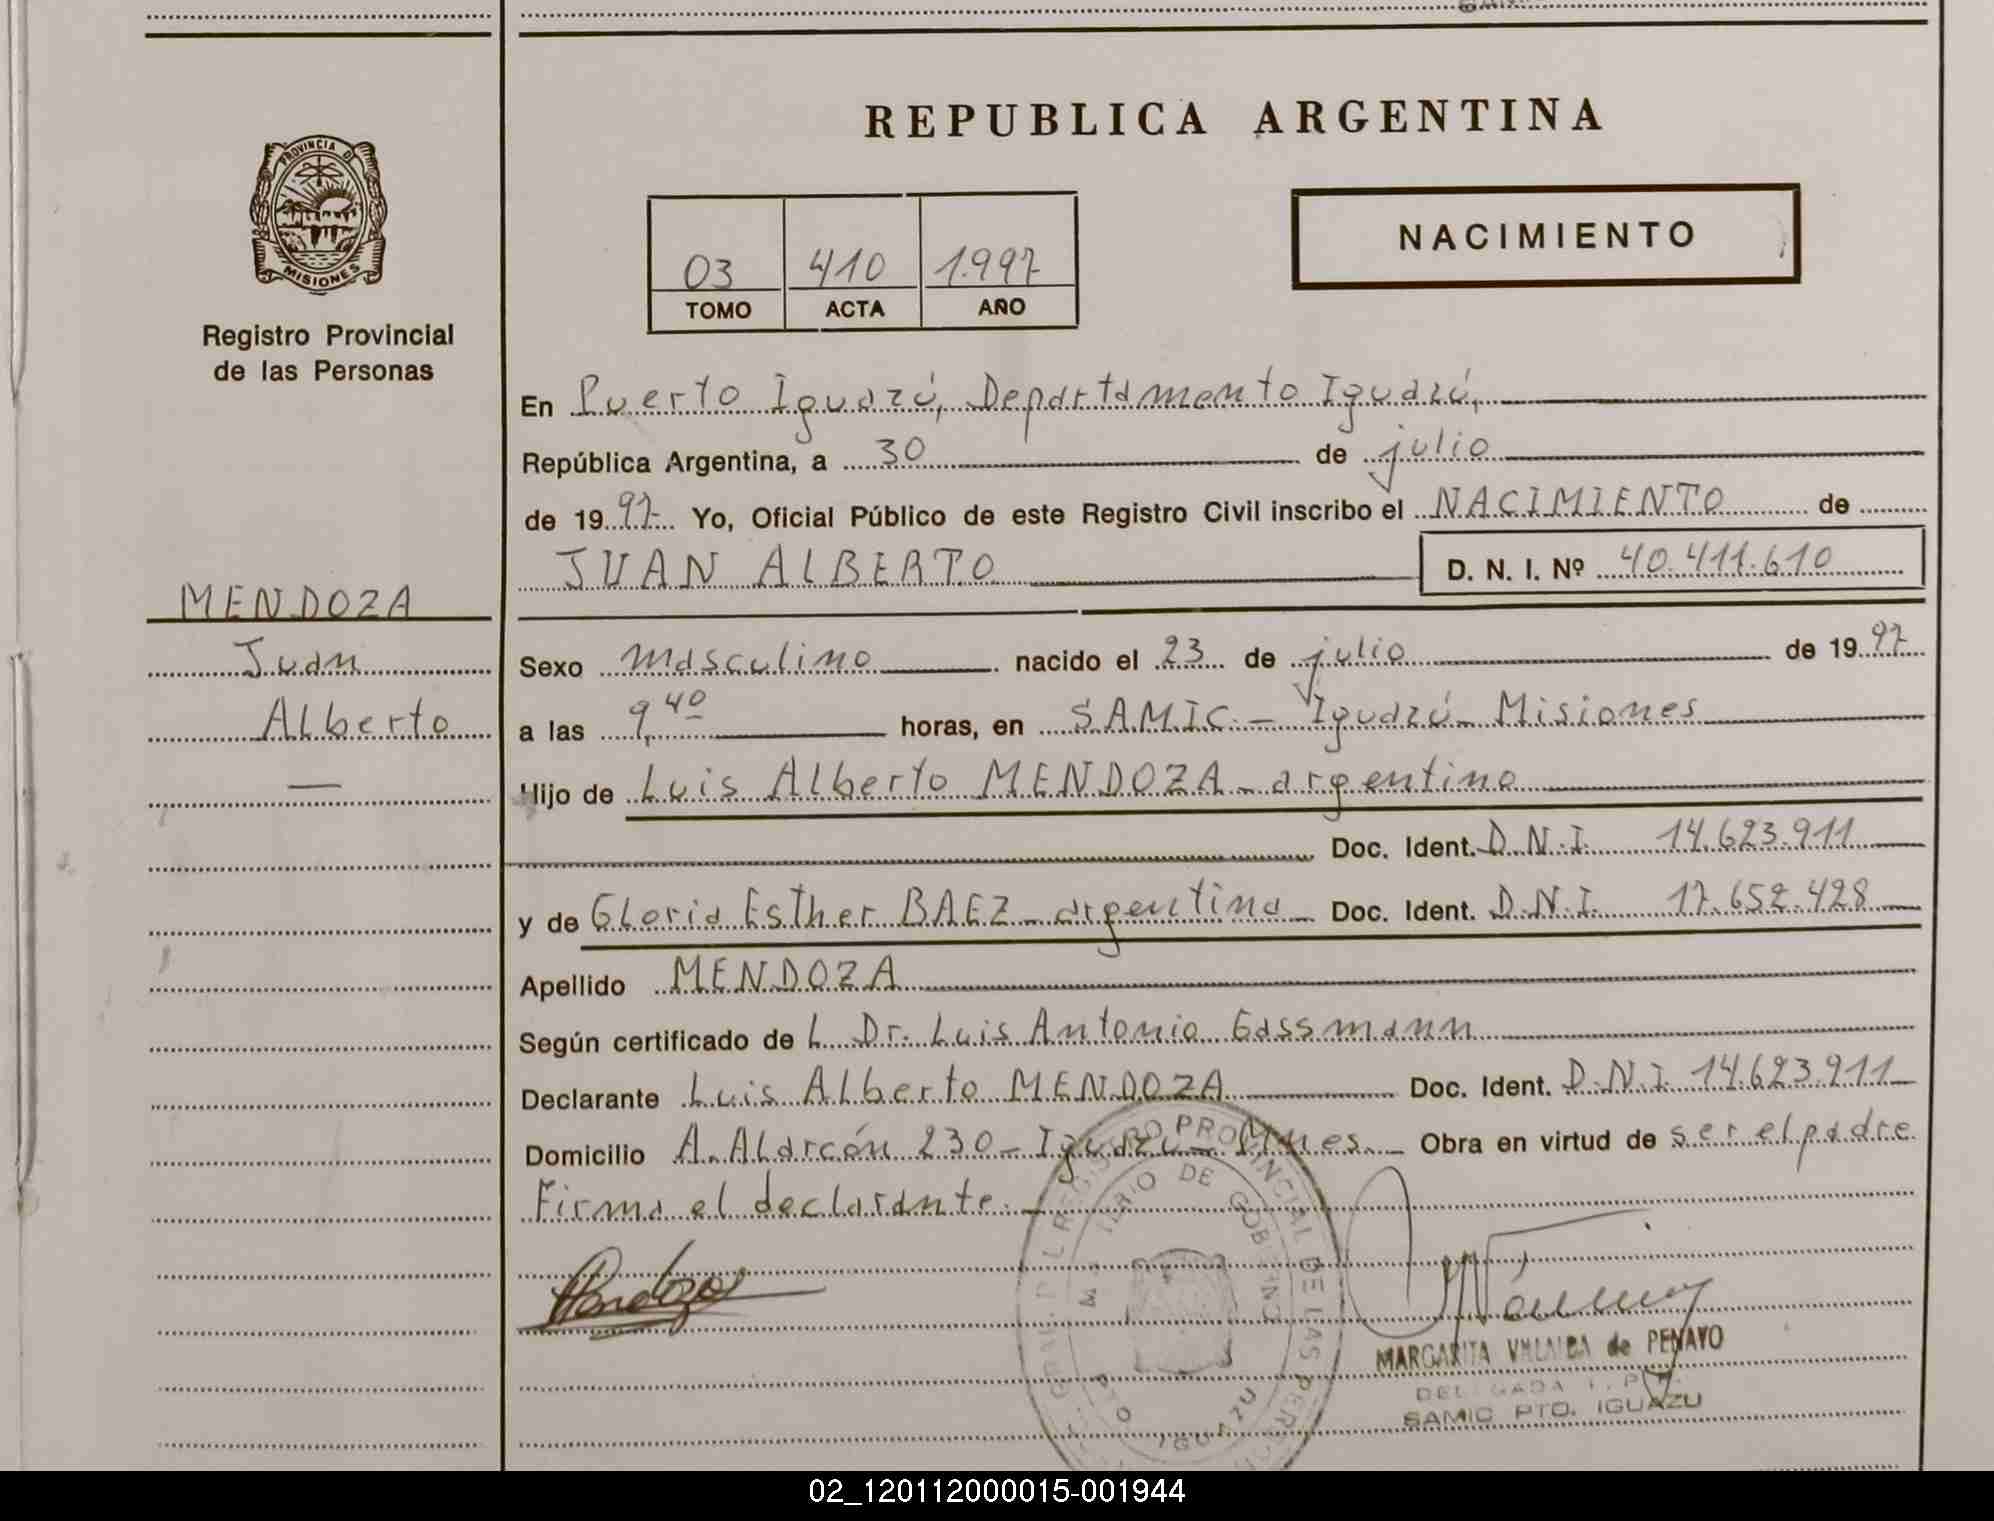 REPUBLICA ARGENTINA
PROVINCIA DE
MISIONES
Registro Provincial
de las Personas
03 410 1.997
TOMO ACTA AÑO
NACIMIENTO
En Puerto Iguazú, Departamento Iguazú,
República Argentina, a 30 de julio
de 1997 Yo, Oficial Público de este Registro Civil inscribo el NACIMIENTO de
JUAN ALBERTO D. N. I. Nº 40.411.610
MENDOZA
Juan
Alberto
—
Sexo masculino nacido el 23 de julio de 1997
a las 9,40 horas, en SAMIC - Iguazú - Misiones
Hijo de Luis Alberto MENDOZA - argentino
Doc. Ident. D.N.I. 14.623.911
y de Gloria Esther BAEZ - argentina - Doc. Ident. D.N.I. 17.652.428
Apellido MENDOZA
Según certificado de L Dr. Luis Antonio Gassmann
Declarante Luis Alberto MENDOZA Doc. Ident. D.N.I 14.623.911
Domicilio A. Alarcón 230 - Iguazú - Mnes. Obra en virtud de ser el padre
Firma el declarante.-
Mendoza
REGISTRO PROVINCIAL DE LAS
DE GOBIERNO
PTO IGUAZU
MARGARITA VILLALBA de PENAYO
DELEGADA
SAMIC PTO. IGUAZU
02_120112000015-001944